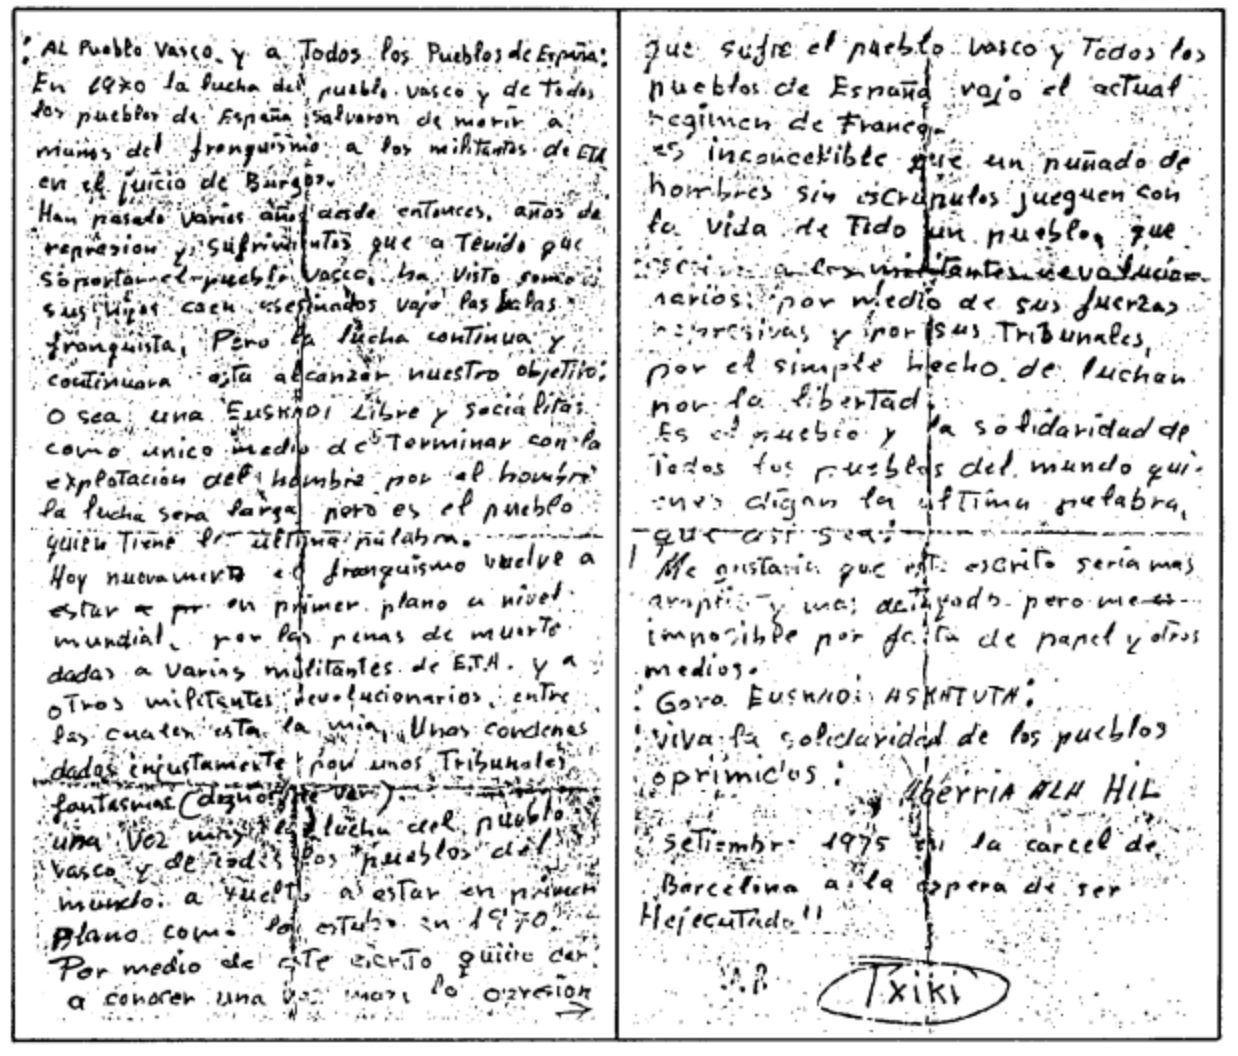 ¡AL Pueblo Vasco, y a Todos los Pueblos de España:
En 1970 la lucha del pueblo vasco y de Todos
los pueblos de España salvaron de morir a
manos del franquismo a los militantes de ETA
en el juicio de Burgos.
Han pasado varios años desde entonces, años de
represion y sufrimientos que a Tenido que
soportar el pueblo vasco, ha visto como
sus hijos caen asesinados vajo las balas
franquista, Pero la lucha continua y
continuara asta alcanzar nuestro objetivo:
O sea una EUSKADI Libre y socialitas
como unico medio de Terminar con la
explotación del hombre por el hombre
la lucha sera larga pero es el pueblo
quien Tiene la ultima palabra.
Hoy nuevamente el franquismo vuelve a
estar en primer plano a nivel
mundial, por las penas de muerte
dadas a varios militantes de E.T.A. y a
oTros militantes revolucionarios, entre
las cuales esta la mia, Unas condenas
dadas injustamente por unos Tribunales
fantasmas (digno de ver).
una vez mas la lucha del pueblo
vasco y de todos los pueblos del
mundo a vuelto a estar en primer
plano como lo estubo en 1970.
Por medio de este escrito quiero dar
a conocer una vez mas, la opresión
que sufre el pueblo vasco y Todos los
pueblos de España vajo el actual
regimen de Franco.
es inconcevible que un puñado de
hombres sin escrupulos jueguen con
la vida de Todo un pueblo, que
a los militantes revolucio-
narios, por medio de sus fuerzas
represivas y por sus Tribunales,
por el simple hecho de luchar
por la libertad.
Es el pueblo y la solidaridad de
Todos los pueblos del mundo qui-
enes digan la ulTima palabra,
que asi sea:
Me gustaria que este escrito seria mas
amplio y mas detayado pero me es
imposible por falta de papel y otros
medios.
Gora EUSKADI ASKATUTA:
viva la solidaridad de los pueblos
oprimidos:
Aberria ALA HIL
setiembre 1975 en la carcel de
Barcelona a la espera de ser
Hejecutado"
Txiki